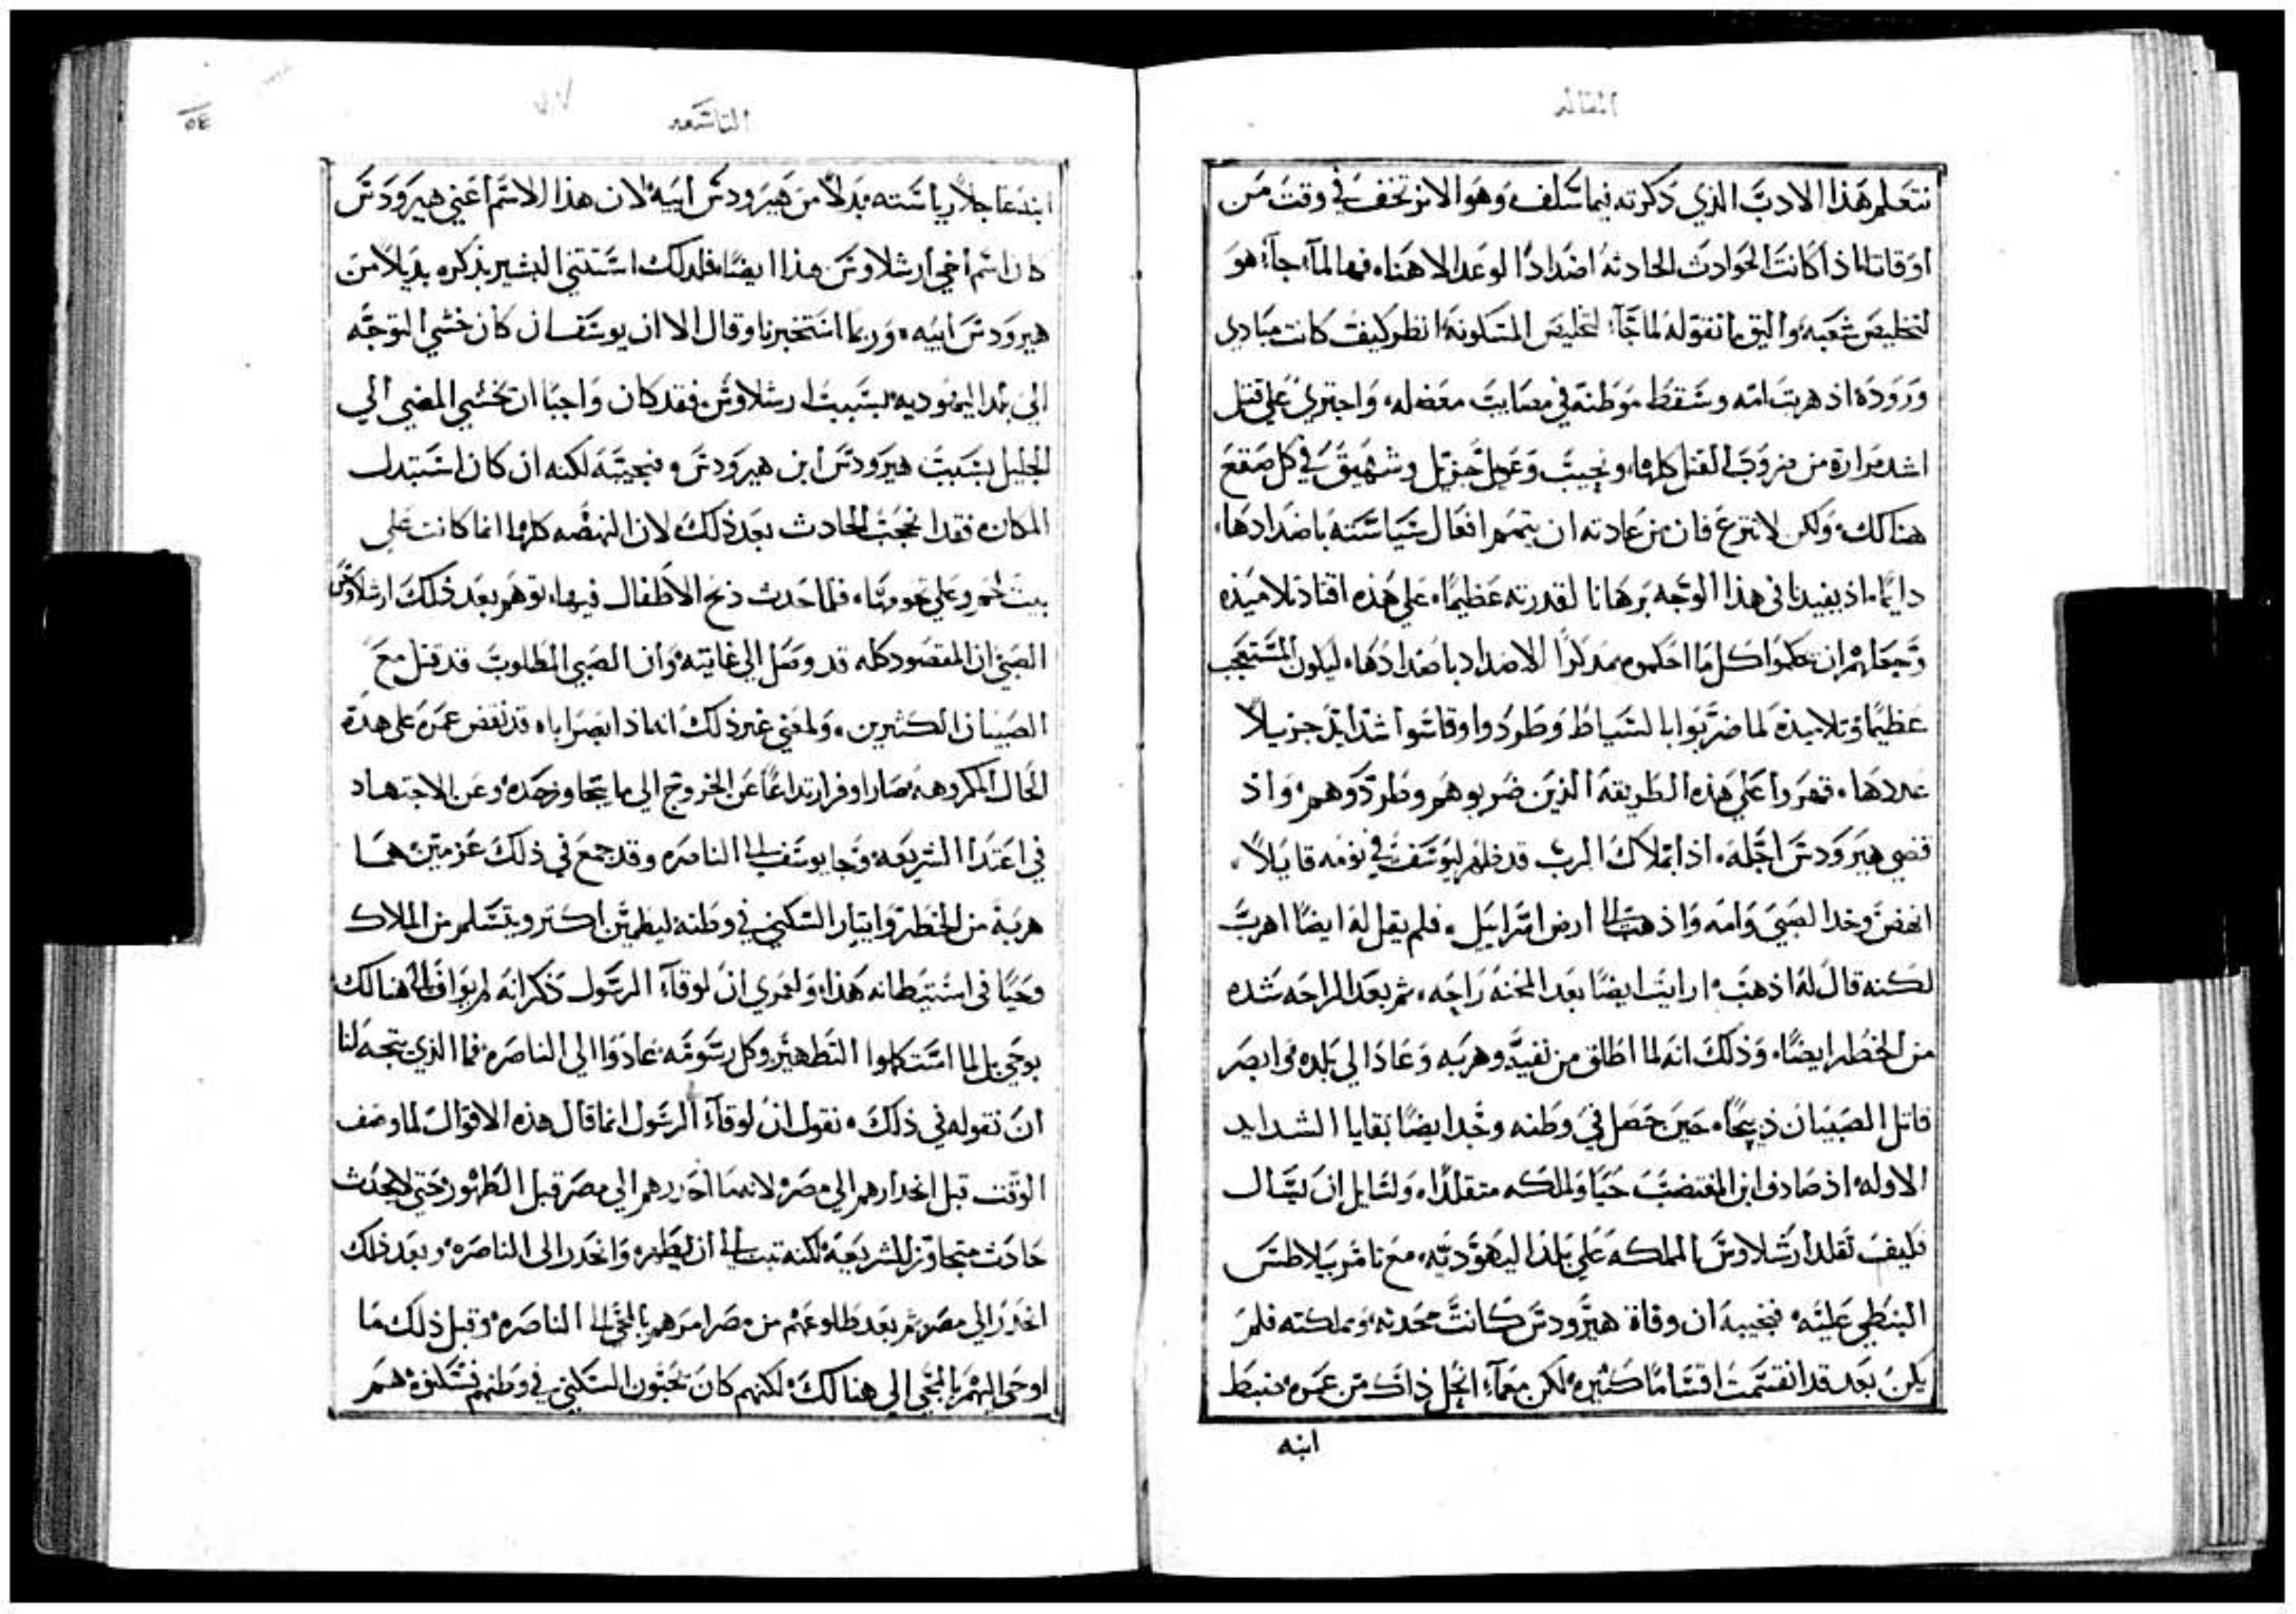 المقاله
نتعلم هذا الادب الذي ذكرته فيما سلف وهو الا نرتخف في وقت من
اوقاتنا اذا كانت الحوادث الحادثه اضدادًا لوعد الاهنا، فها لمآ جآ هو
لتخليص شعبه، واليق ما نقوله لما جآ لتخليص المسكونه انظر كيف كانت مبادي
وروده اذ هربت امه وسقط موطنه في مصايب معضله، واجتري علي قتل
اشد مرارة من ضروب القتل كلها، ونحيب وعويل جزيل وشهيق في كل صقع
هنالك، ولكن لا تترع فان من عادته ان يتمم افعال سياسته باضدادها،
دايمًا، اذ يفيدنا في هذا الوجه برهانا لقدرته عظيمًا، علي هذه اقتاد تلاميذه
وجعلهم ان يحكموا كل ما احكموه مدركًا الاضداد باضدادها، ليكون المستعجب
عظيمًا وتلاميذه لما ضربوا بالسياط وطردوا وقاسوا شدايد جزيلاً
عددها، قهروا علي هذه الطريقه الذين ضربوهم وطردوهم، واذ
قضي هيرودس اجله، اذا بملاك الرب قد ظهر ليوسف في نومه قايلاً،
انهض وخذ الصبي وامه واذهب الى ارض اسراييل، فلم يقل له ايضًا اهرب
لكنه قال له اذهب، ارايت ايضًا بعد المحنه راحه، ثم بعد الراحه شده
من الخطر ايضًا، وذلك انه لما اطلق من نفيه وهربه وعاد الي بلده وابصر
قاتل الصبيان ذبيحًا، حين حصل في وطنه وجد ايضًا بقايا الشدايد
الاوله، اذ صادف ابن المغتصب حيًا وللملكه متقلدًا، ولسايل ان يسال
فكيف تقلد ارشلاوس المملكه علي بلد اليهوديه، مع تامر بيلاطس
البنطي عليه، فنجيبه ان وفاة هيرودس كانت محدثه، ومملكته فلم
يكن بعد قد انقسمت اقسامًا كثيره، لكن معمآ انحل ذاك من عمره ضبط
ابنه
التاسعه
٥٤
ابنه عاجلاً رياسته بدلاً من هيرودس ابيه لان هذا الاسم اعني هيرودس
كان اسم اخي ارشلاوس هذا ايضًا فلذلك استثني البشير بذكره بديلاً من
هيرودس ابيه، وربما استخبرنا وقال الا ان يوسف ان كان خشي التوجه
الي بلد اليهوديه بسبب ارشلاوس، فقد كان واجبًا ان يخشي المضي الي
الجليل بسبب هيرودس ابن هيرودس، فنجيبه لكنه ان كان استبدل
المكان، فقد انحجب الحادث بعد ذلك لان النهضه كلها انما كانت علي
بيت لحم وعلي تخومها، فلما حدث ذبح الاطفال فيها، توهم بعد ذلك ارشلاوس
الصبي ان المقصود كله قد وصل الي غايته، وان الصبي المطلوب قد قتل مع
الصبيان الكثيرين، ولمعني غير ذلك انه اذ ابصر اباه قد نقض عمره علي هذه
الحال المكروهه صار اوفر ارتداعًا عن الخروج الي ما يتجاوز حده وعن الاجتهاد
في اعتدا الشريعه، وجا يوسف الى الناصره وقد جمع في ذلك عزمين هما
هربه من الخطر وايثار السكني في وطنه ليطمين اكثر ويتسلم من الملاك
وحيًا في استيطانه هذا، ولعمري ان لوقآ الرسول ذكر انه لم يوافى الى هنالك
بوحي بل لما استكملوا التطهير وكل رسومه عادوا الي الناصره، فما الذي يتجه لنا
ان نقوله في ذلك، نقول ان لوقآ الرسول انما قال هذه الاقوال لما وصف
الوقت قبل انحدارهم الي مصر، لانه ما احدرهم الي مصر قبل الطهور، حتي لا يحدث
حادث متجاوز للشريعه لكنه تبت الى ان يطهره وانحدر الى الناصره، وبعد ذلك
انحدر الي مصر، ثم بعد طلوعهم من مصر امرهم بالمجي الى الناصره، وقبل ذلك ما
اوحي اليهم بالمجي الي هنالك، لكنهم كان يحبون السكني في وطنهم فسكنوه هم